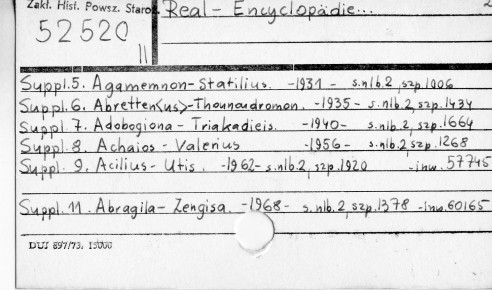 Zakł. Hist. Powsz. Staroż.
Real-Encyclopädie... 2
52520
II
Suppl.5. Agamemnon-Statilius. -1931- s.nlb.2, szp.1006
Suppl.6. Abretten<us>-Thounoudromon. -1935- s.nlb.2, szp.1434
Suppl.7. Adobogiona-Triakadieis. -1940- s.nlb.2, szp.1664
Suppl.8. Achaios-Valerius -1956- s.nlb.2, szp.1268
Suppl.9. Acilius-Utis. -1962- s.nlb.2, szp.1920 -inw.57745
Suppl.11. Abragila-Zengisa. -1968- s.nlb.2, szp.1378 -inw.60165
DUJ 897/73. 15000